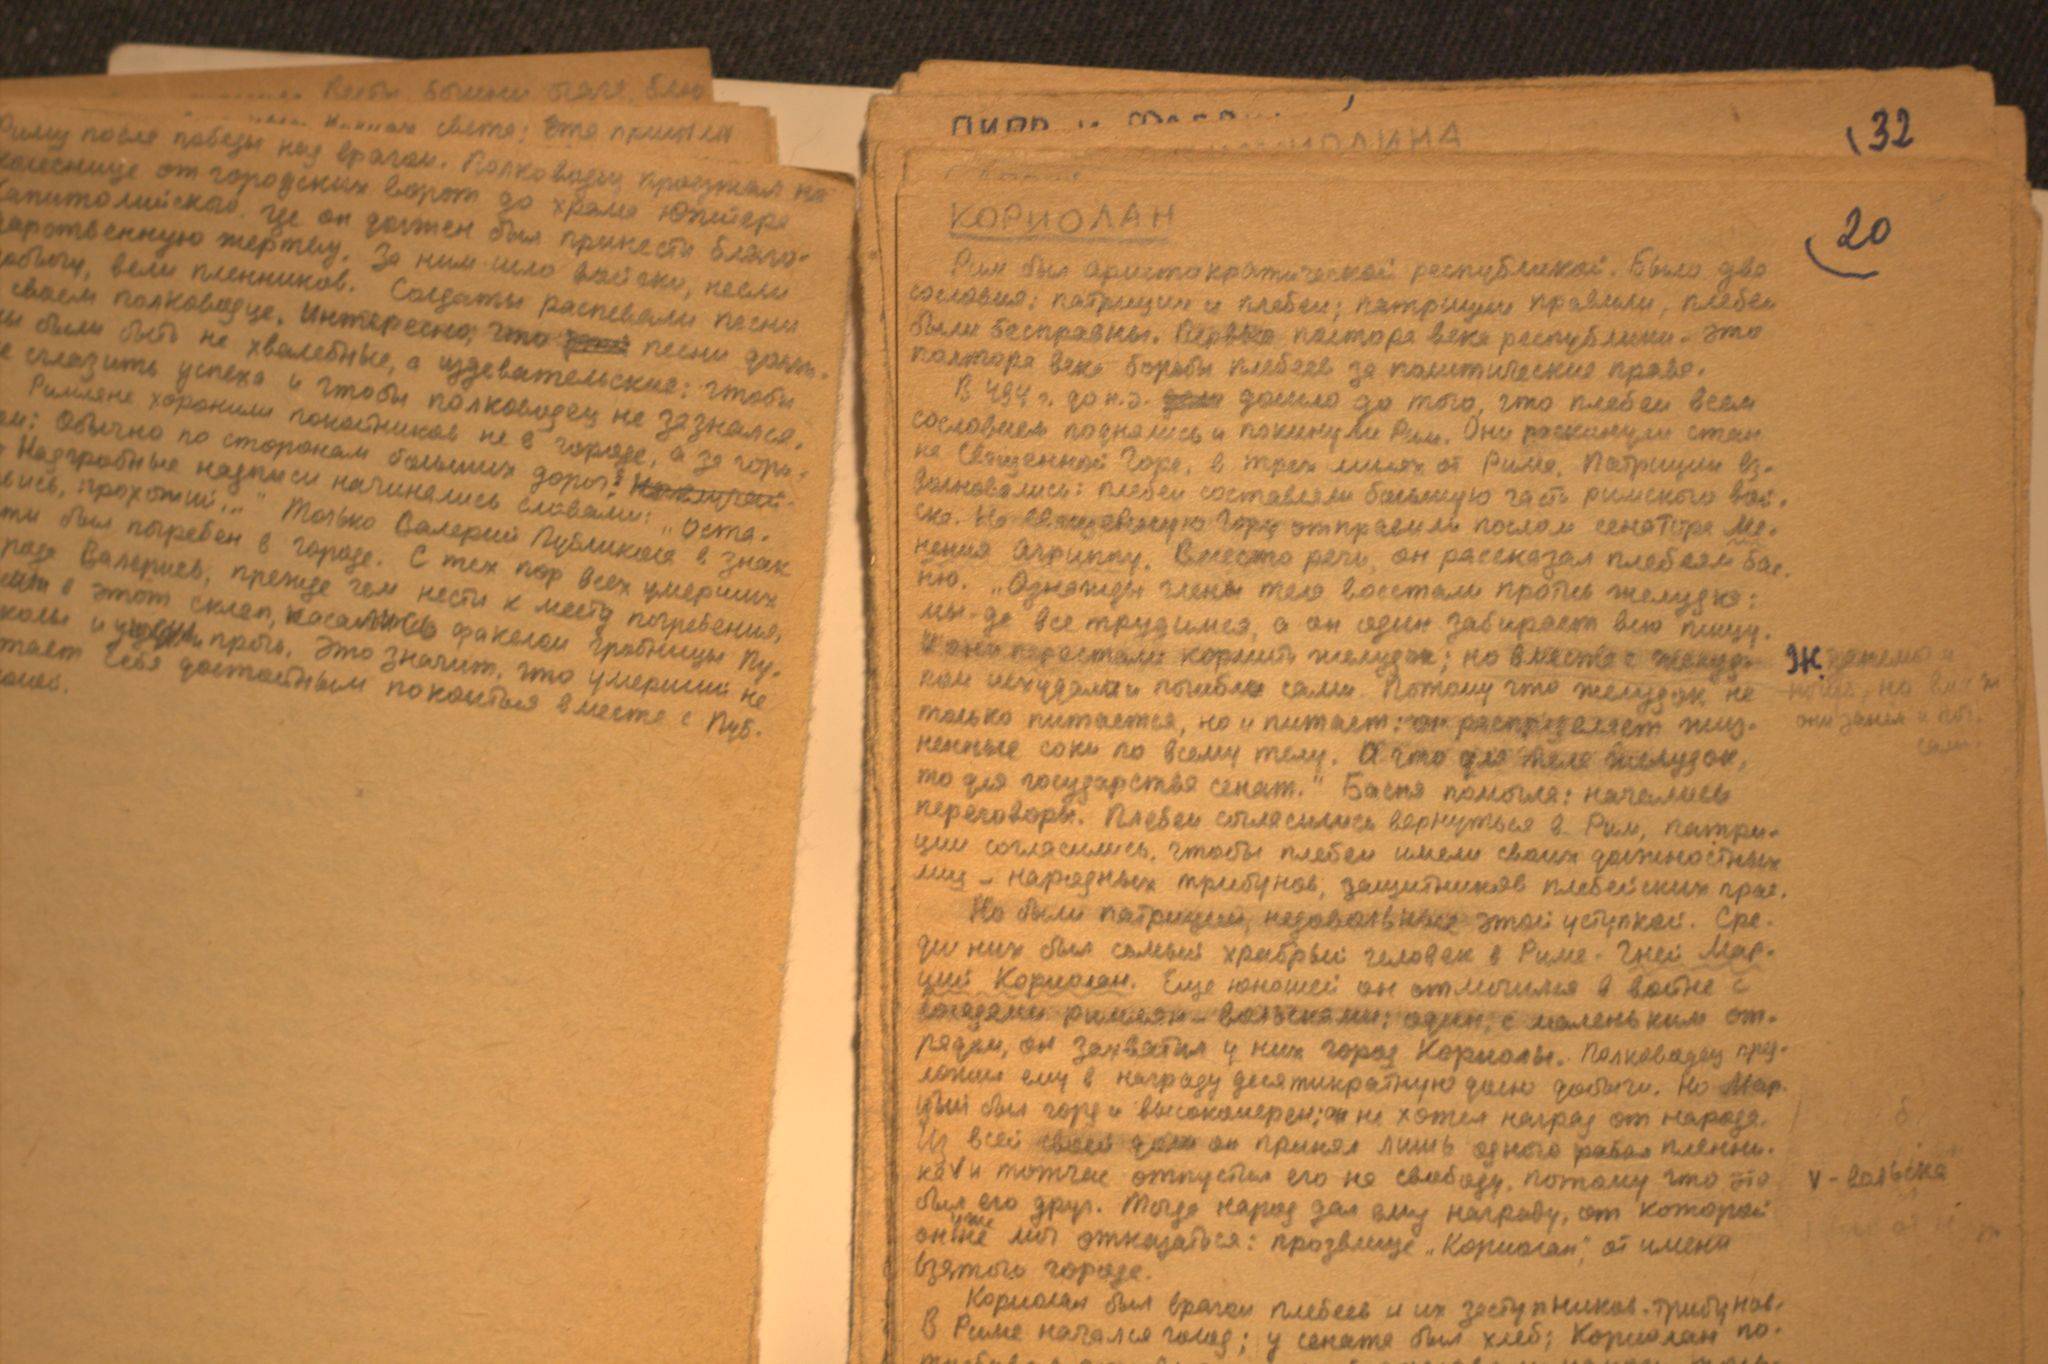 Весты
света; Это
Риму после победы над врагом. Полководец проезжал на
колеснице от городских ворот до храма Юпитера
Капитолийского, где он должен был принести благо-
дарственную жертву. За ним шло войско, несли
добычу, вели пленников. Солдаты распевали песни
о своем полководце. Интересно, что песни долж-
ны были быть не хвалебные, а издевательские: чтобы
не сглазить успеха и чтобы полководец не зазнался.
Римляне хоронили покойников не в городе, а за горо-
дом: обычно по сторонам больших дорог.
Надгробные надписи начинались словами: „Оста-
новись, прохожий..." Только Валерий Публикола в знак
был погребен в городе. С тех пор всех умерших
рода Валериев, прежде чем нести к месту погребения,
в этот склеп, касались факелом гробницы Пу-
колы и уходили прочь. Это значит, что умерший не
считает себя достойным покоиться вместе с Пуб-
ликолой.
ПИРР и
32
КОРИОЛАН
20
Рим был аристократической республикой. Было два
сословия: патриции и плебеи; патриции правили, плебеи
были бесправны. Первые полтора века республики - это
полтора века борьбы плебеев за политические права.
В 494 г. до н.э. дошло до того, что плебеи всем
сословием поднялись и покинули Рим. Они раскинули стан
на Священной Горе, в трех милях от Рима. Патриции вз-
волновались: плебеи составляли большую часть римского вой-
ска. На Священную Гору отправили послом сенатора Ме-
нения Агриппу. Вместо речи, он рассказал плебеям бас-
ню. „Однажды члены тела восстали против желудка:
мы-де все трудимся, а он один забирает всю пищу.
И они перестали кормить желудок; но вместе с желуд-
ком исхудали и погибли сами. Потому что желудок не
только питается, но и питает: он распределяет жиз-
ненные соки по всему телу. А что для тела желудок,
то для государства сенат." Басня помогла: начались
переговоры. Плебеи согласились вернуться в Рим, патри-
ции согласились, чтобы плебеи имели своих должностных
лиц - народных трибунов, защитников плебейских прав.
Но были патриции, недовольные этой уступкой. Сре-
ди них был самый храбрый человек в Риме - Гней Мар-
ций Кориолан. Еще юношей он отличился в войне с
соседями римлян - вольсками: один, с маленьким от-
рядом, он захватил у них город Кориолы. Полководец пред-
ложил ему в награду десятикратную долю добычи. Но Мар-
ций был горд и высокомерен; он не хотел наград от народа.
Из всей своей доли он принял лишь одного раба пленни-
ка V и тотчас отпустил его на свободу, потому что это
был его друг. Тогда народ дал ему награду, от которой
он уже не мог отказаться: прозвище „Кориолан", от имени
взятого города.
Кориолан был врагом плебеев и их заступников-трибунов.
В Риме начался голод; у сената был хлеб; Кориолан по-
Ж
сами.
V - вольска